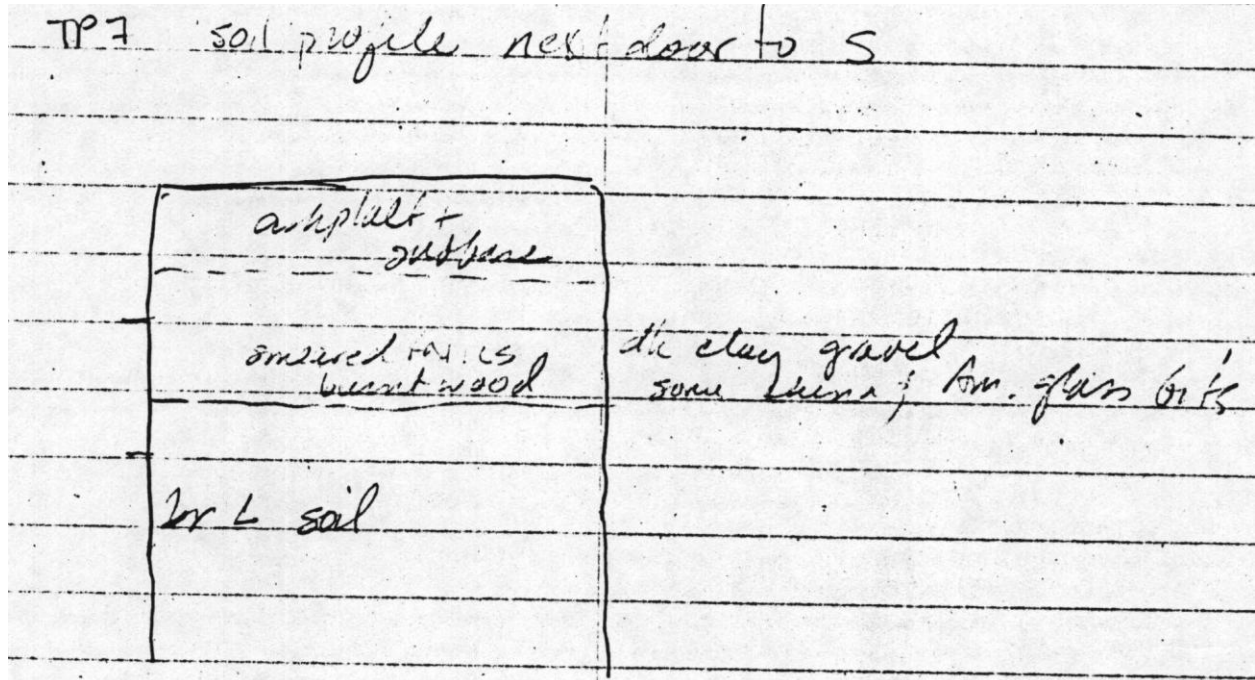 TP7 soil profile next door to S
ashphalt +
subbase
smeared
burnt wood
dk clay gravel
some ; Am. glass bits
br L soil